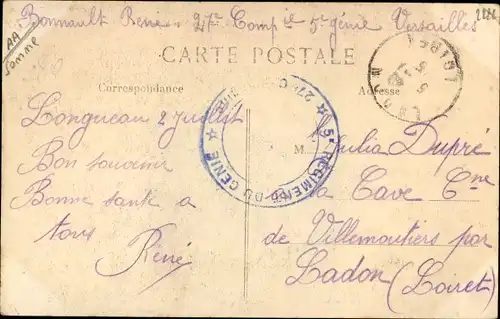 Bonnault René - 27e Compie 5e génie Versailles
2886
AA
Somme
CARTE POSTALE
Correspondance
Adresse
LOIRET
5 - 5
27e C
5e RÉGIMENT DU GÉNIE
Longueau 2 Juillet
Bon souvenir
Bonne santé à
tous
René
M Julia Dupré
la Cave Cne
de Villemoutiers par
Ladon (Loiret)